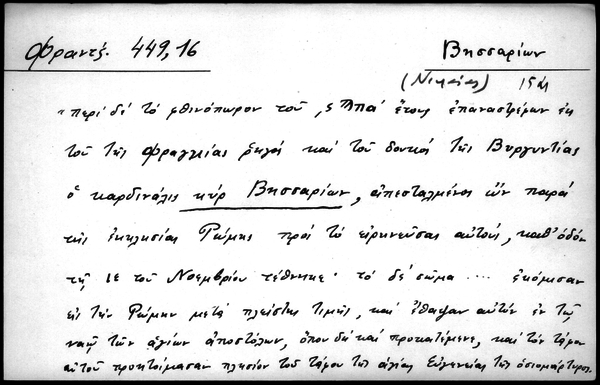 Φραντζ. 449,16 Βησσαρίων
(Νικαίας) 15ος
"περί δέ τό φθινόπωρον τοῦ ,ςϠπα' ἔτους ἐπαναστρέφων ἐκ
τοῦ τῆς Φραγγίας ῥηγός καί τοῦ δουκός τῆς Βυργυντίας
ὁ καρδινάλις κύρ Βησσαρίων, ἀπεσταλμένος ὤν παρά
τῆς ἐκκλησίας Ῥώμης πρός τό εἰρηνεῦσαι αὐτούς, καθ' ὁδόν
τῇ ιε τοῦ Νοεμβρίου τέθνηκε· τό δέ σῶμα .... ἐκόμισαν
εἰς τήν Ῥώμην μετά πλείστης τιμῆς, καί ἔθαψαν αὐτόν ἐν τῷ
ναῷ τῶν ἁγίων ἀποστόλων, ὅπου δή καί προκατέμενε, καί τόν τάφον
αὐτοῦ προητοίμασαν πλησίον τοῦ τάφου τῆς ἁγίας Εὐγενείας τῆς ὁσιομάρτυρος.